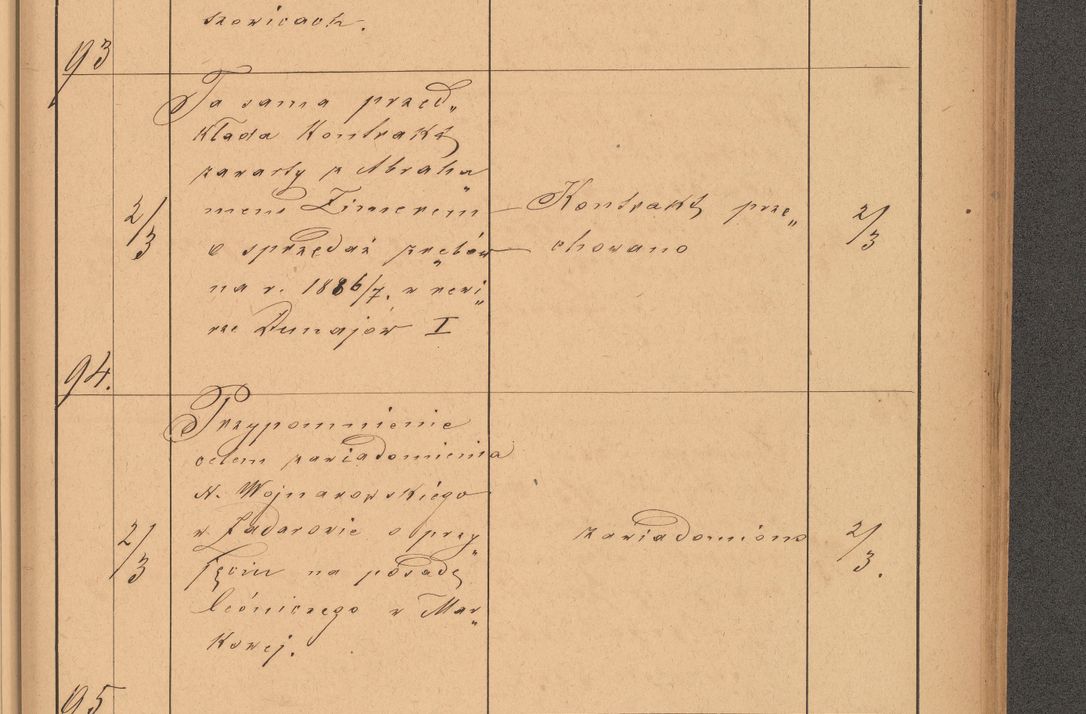 szowicach.
93
Ta sama przed„
kłada Kontrakt
zawarty z Abraha„
mem Zimerem
o sprzedaż zrębów
na r. 1886/7. w rewi„
rze Dunajów I
2/3
Kontrakt prze„
chowano
2/3
94.
Przypomnienie
celem zawiadomienia
N. Wojnarowskiego
w Zadarowie o przy„
jęciu na posadę
leśniczego w Mar„
kowej.
2/3
zawiadomiono
2/3.
95